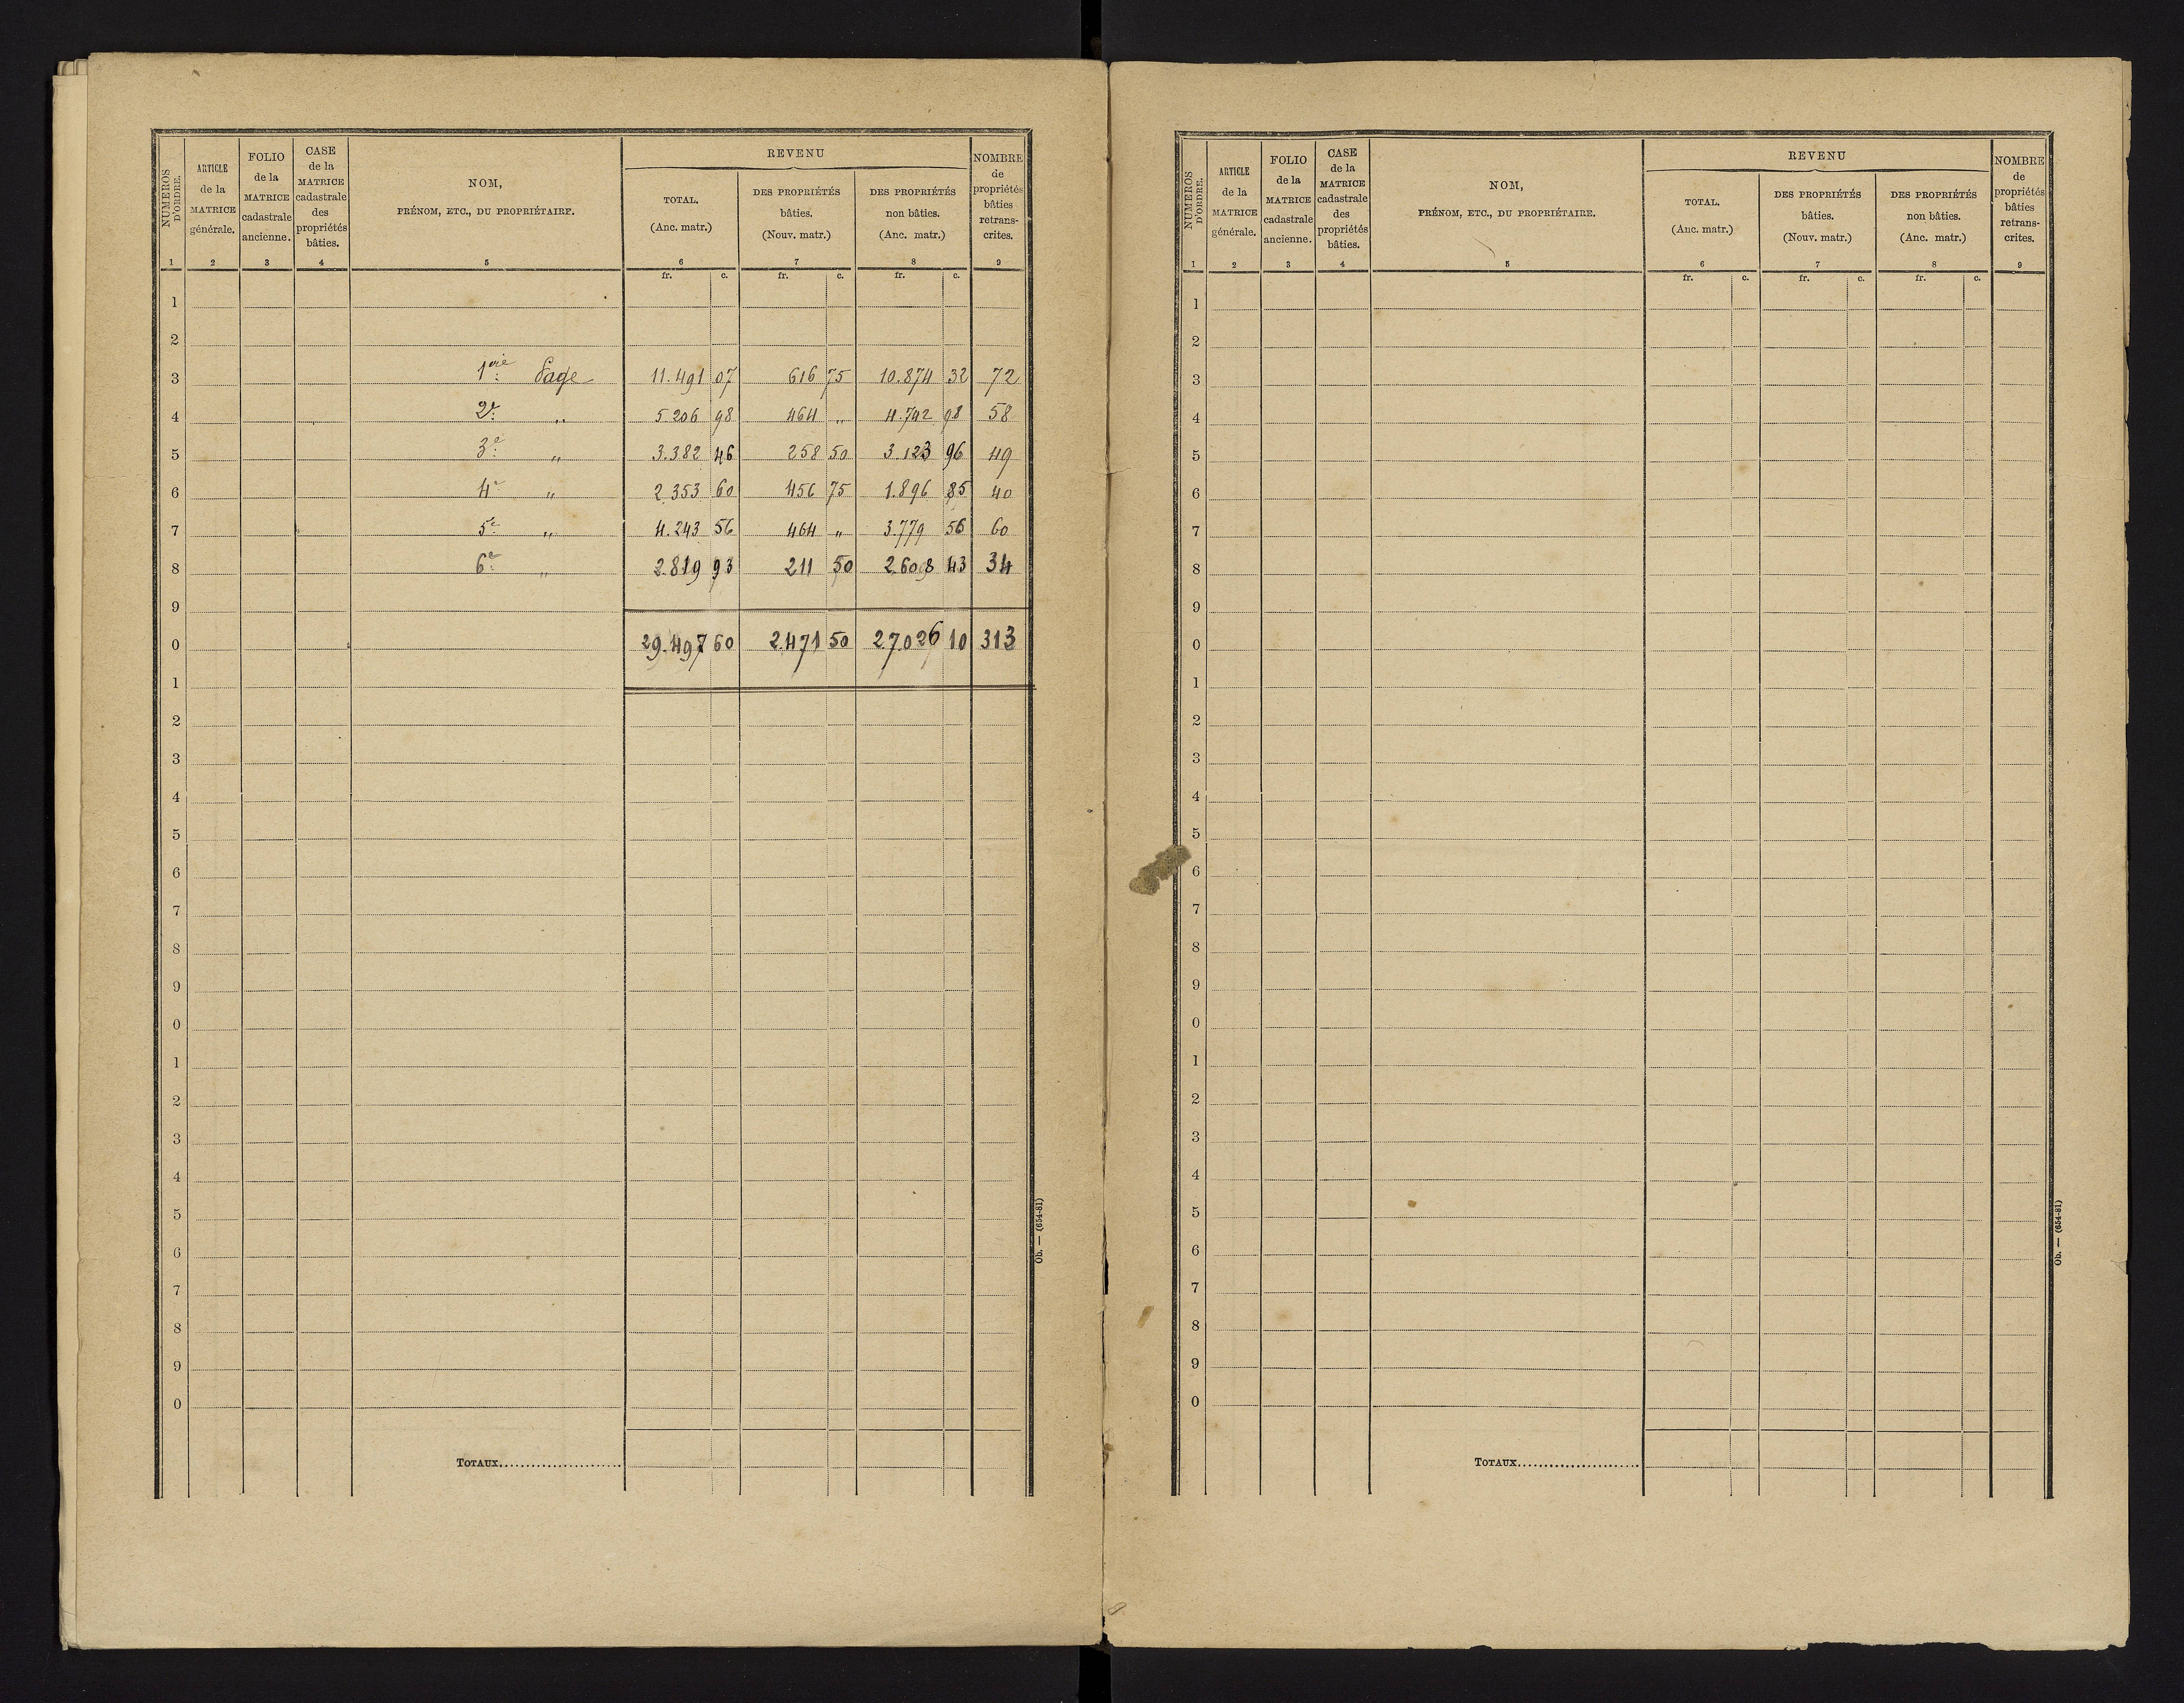 NUMÉROS D'ORDRE. ARTICLE de la MATRICE générale. FOLIO de la MATRICE cadastrale ancienne. CASE de la MATRICE cadastrale des propriétés bâties. NOM, PRÉNOM, ETC., DU PROPRIÉTAIRE. REVENU TOTAL. (Anc. matr.) DES PROPRIÉTÉS bâties. (Nouv. matr.) DES PROPRIÉTÉS non bâties. (Anc. matr.) NOMBRE de propriétés bâties retranscrites.
1 2 3 4 5 6 7 8 9
fr. c. fr. c. fr. c.
1
2
3 1ère Page 11.491 07 616 75 10.874 32 72
4 2e " 5.206 98 464 " 4.742 98 58
5 3e " 3.382 46 258 50 3.123 96 49
6 4e " 2.353 60 456 75 1.896 85 40
7 5e " 4.243 56 464 " 3.779 56 60
8 6e " 2.819 93 211 50 2.608 43 34
9
0 29.497 60 2.471 50 27.026 10 313
1
2
3
4
5
6
7
8
9
0
1
2
3
4
5
6
7
8
9
0
TOTAUX
Ob. — (654-81)
NUMÉROS D'ORDRE. ARTICLE de la MATRICE générale. FOLIO de la MATRICE cadastrale ancienne. CASE de la MATRICE cadastrale des propriétés bâties. NOM, PRÉNOM, ETC., DU PROPRIÉTAIRE. REVENU TOTAL. (Anc. matr.) DES PROPRIÉTÉS bâties. (Nouv. matr.) DES PROPRIÉTÉS non bâties. (Anc. matr.) NOMBRE de propriétés bâties retranscrites.
1 2 3 4 5 6 7 8 9
fr. c. fr. c. fr. c.
1
2
3
4
5
6
7
8
9
0
1
2
3
4
5
6
7
8
9
0
1
2
3
4
5
6
7
8
9
0
TOTAUX
Ob. — (654-81)